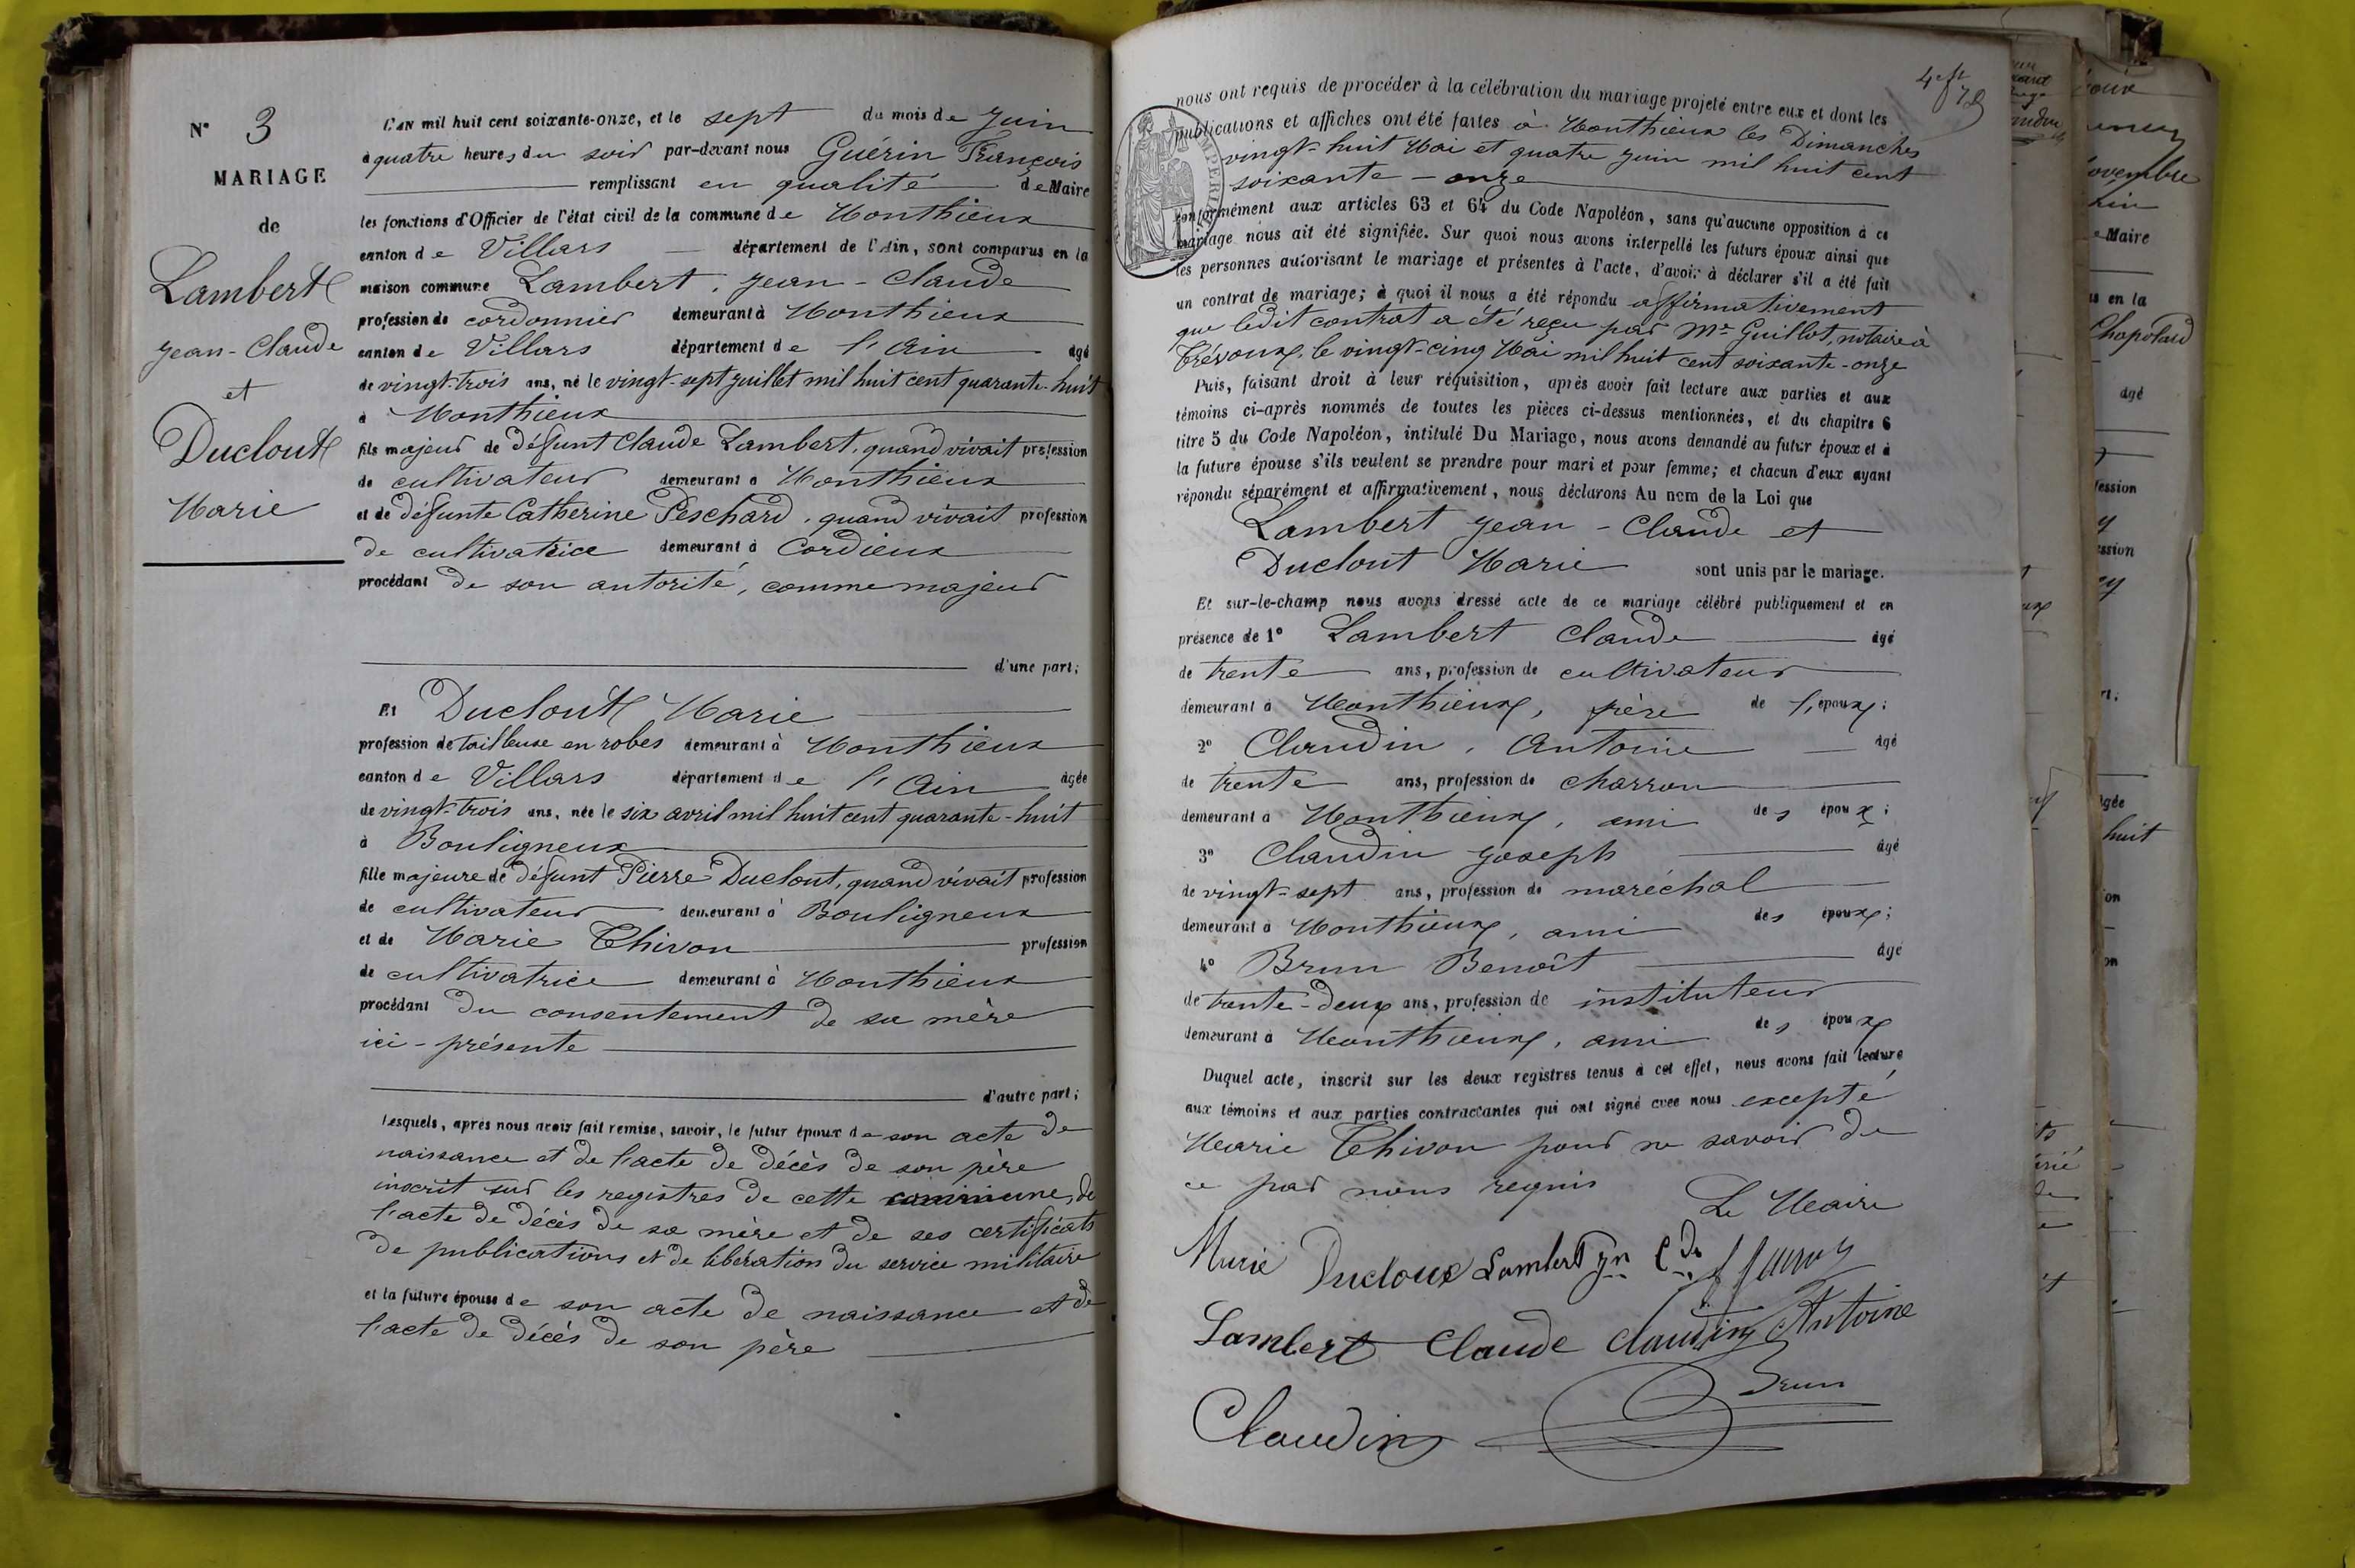 N° 3
MARIAGE
de
Lambert
Jean-Claude
et
Duclout
Marie
L'AN mil huit cent soixante-onze, et le sept du mois de Juin
à quatre heures du soir par-devant nous Guérin François
remplissant en qualité de Maire
les fonctions d'Officier de l'état civil de la commune de Monthieux
canton de Villars département de l'Ain, sont comparus en la
maison commune Lambert, Jean-Claude
profession de cordonnier demeurant à Monthieux
canton de Villars département de l'Ain âgé
de vingt-trois ans, né le vingt-sept juillet mil huit cent quarante-huit
à Monthieux
fils majeur de défunt Claude Lambert, quand vivait profession
de cultivateur demeurant à Monthieux
et de défunte Catherine Peschard, quand vivait profession
de cultivatrice demeurant à Cordieux
procédant de son autorité, comme majeur
d'une part;
Et Duclout Marie
profession de tailleuse en robes demeurant à Monthieux
canton de Villars département de l'Ain âgée
de vingt-trois ans, née le six avril mil huit cent quarante-huit
à Bouligneux
fille majeure de défunt Pierre Duclout, quand vivait profession
de cultivateur demeurant à Bouligneux
et de Marie Thivon profession
de cultivatrice demeurant à Monthieux
procédant du consentement de sa mère
ici-présente
d'autre part;
Lesquels, après nous avoir fait remise, savoir, le futur époux de son acte de
naissance et de l'acte de décès de son père
inscrit sur les registres de cette commune, de
l'acte de décès de sa mère et de ses certificats
de publications et de libération du service militaire
et la future épouse de son acte de naissance et de
l'acte de décès de son père
nous ont requis de procéder à la célébration du mariage projeté entre eux et dont les
publications et affiches ont été faites à Monthieux les Dimanches
vingt-huit Mai et quatre juin mil huit cent
soixante-onze
conformément aux articles 63 et 64 du Code Napoléon, sans qu'aucune opposition à ce
mariage nous ait été signifiée. Sur quoi nous avons interpellé les futurs époux ainsi que
les personnes autorisant le mariage et présentes à l'acte, d'avoir à déclarer s'il a été fait
un contrat de mariage; à quoi il nous a été répondu affirmativement
que ledit contrat a été reçu par Me Guillot, notaire à
Trévoux, le vingt-cinq Mai mil huit cent soixante-onze
Puis, faisant droit à leur réquisition, après avoir fait lecture aux parties et aux
témoins ci-après nommés de toutes les pièces ci-dessus mentionnées, et du chapitre 6
titre 5 du Code Napoléon, intitulé Du Mariage, nous avons demandé au futur époux et à
la future épouse s'ils veulent se prendre pour mari et pour femme; et chacun d'eux ayant
répondu séparément et affirmativement, nous déclarons Au nom de la Loi que
Lambert Jean-Claude et
Duclout Marie sont unis par le mariage.
Et sur-le-champ nous avons dressé acte de ce mariage célébré publiquement et en
présence de 1° Lambert Claude âgé
de trente ans, profession de cultivateur
demeurant à Monthieux, frère de l'époux;
2° Claudin, Antoine âgé
de trente ans, profession de charron
demeurant à Monthieux, ami des époux;
3° Claudin Joseph âgé
de vingt-sept ans, profession de maréchal
demeurant à Monthieux, ami des époux;
4° Brun Benoît âgé
de trente-deux ans, profession de instituteur
demeurant à Monthieux, ami des époux
Duquel acte, inscrit sur les deux registres tenus à cet effet, nous avons fait lecture
aux témoins et aux parties contractantes qui ont signé avec nous excepté
Marie Thivon pour ne savoir de
ce par nous requis
Le Maire
Marie Ducloux Lambert Jn Cde
Lambert Claude Claudin Antoine
Brun
Claudin